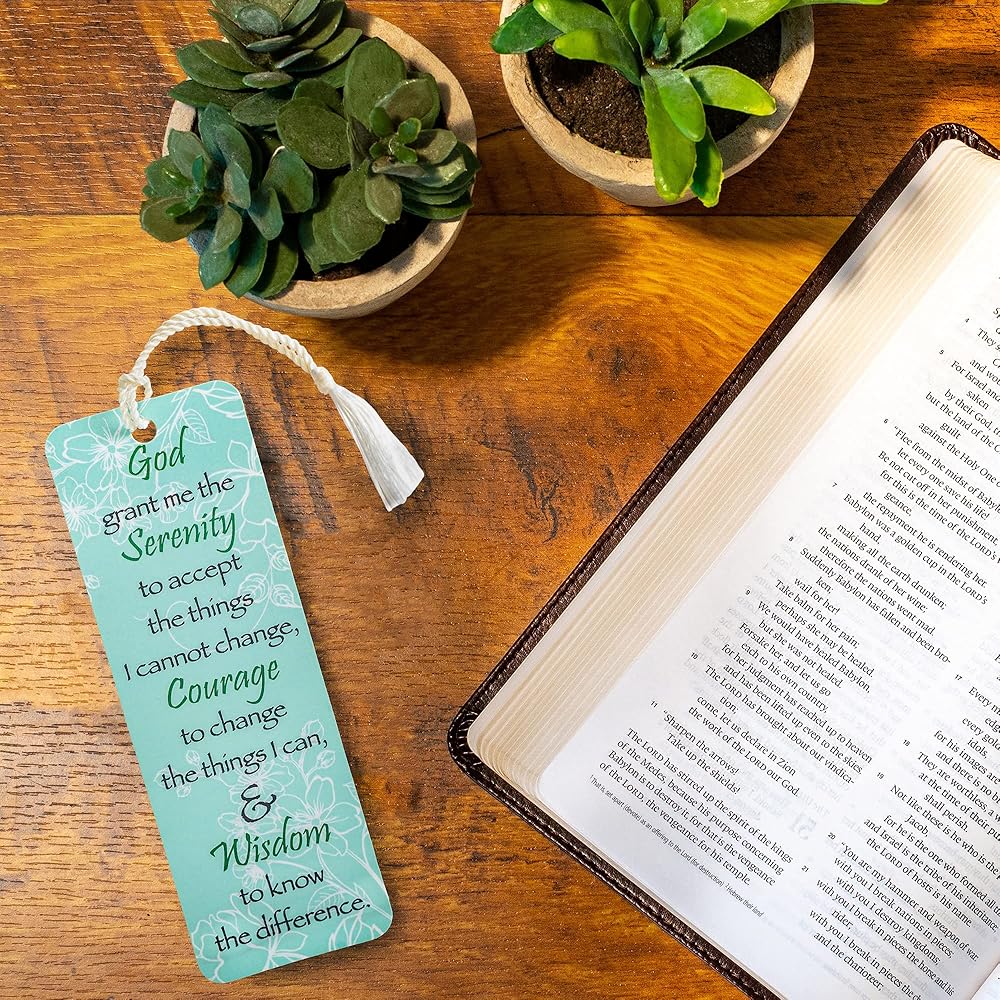 God
grant me the
Serenity
to accept
the things
I cannot change,
Courage
to change
the things I can,
&
Wisdom
to know
the difference.
4
They s
and wou
5 For Israel and
saken
by their God, t
but the land of the C
guilt
against the Holy One
6 "Flee from the midst of Babylon;
let every one save his life!
Be not cut off in her punishment,
for this is the time of the LORD's
geance,
the repayment he is rendering her.
7 Babylon was a golden cup in the LORD's
hand,
making all the earth drunken;
the nations drank of her wine;
therefore the nations went mad.
8 Suddenly Babylon has fallen and been bro-
ken;
wail for her!
Take balm for her pain;
perhaps she may be healed.
9 We would have healed Babylon,
but she was not healed.
Forsake her, and let us go
each to his own country,
for her judgment has reached up to heaven
and has been lifted up even to the skies.
10 The LORD has brought about our vindica-
tion;
come, let us declare in Zion
the work of the LORD our God.
11 "Sharpen the arrows!
Take up the shields!
The LORD has stirred up the spirit of the kings
of the Medes, because his purpose concerning
Babylon is to destroy it, for that is the vengeance
of the LORD, the vengeance for his temple.
That is, set apart (devote) as an offering to the Lord (for destruction) Hebrew their land
17 Every m
every gol
idols,
for his images are
and there is no b
18 They are worthless, a w
at the time of their p
shall perish.
19 Not like these is he who is the
Jacob,
for he is the one who formed all
and Israel is the tribe of his inheritance
the LORD of hosts is his name.
20 "You are my hammer and weapon of war:
with you I break nations in pieces;
with you I destroy kingdoms;
21 with you I break in pieces the horse and his
rider;
with you I break in pieces the
and the charioteer;